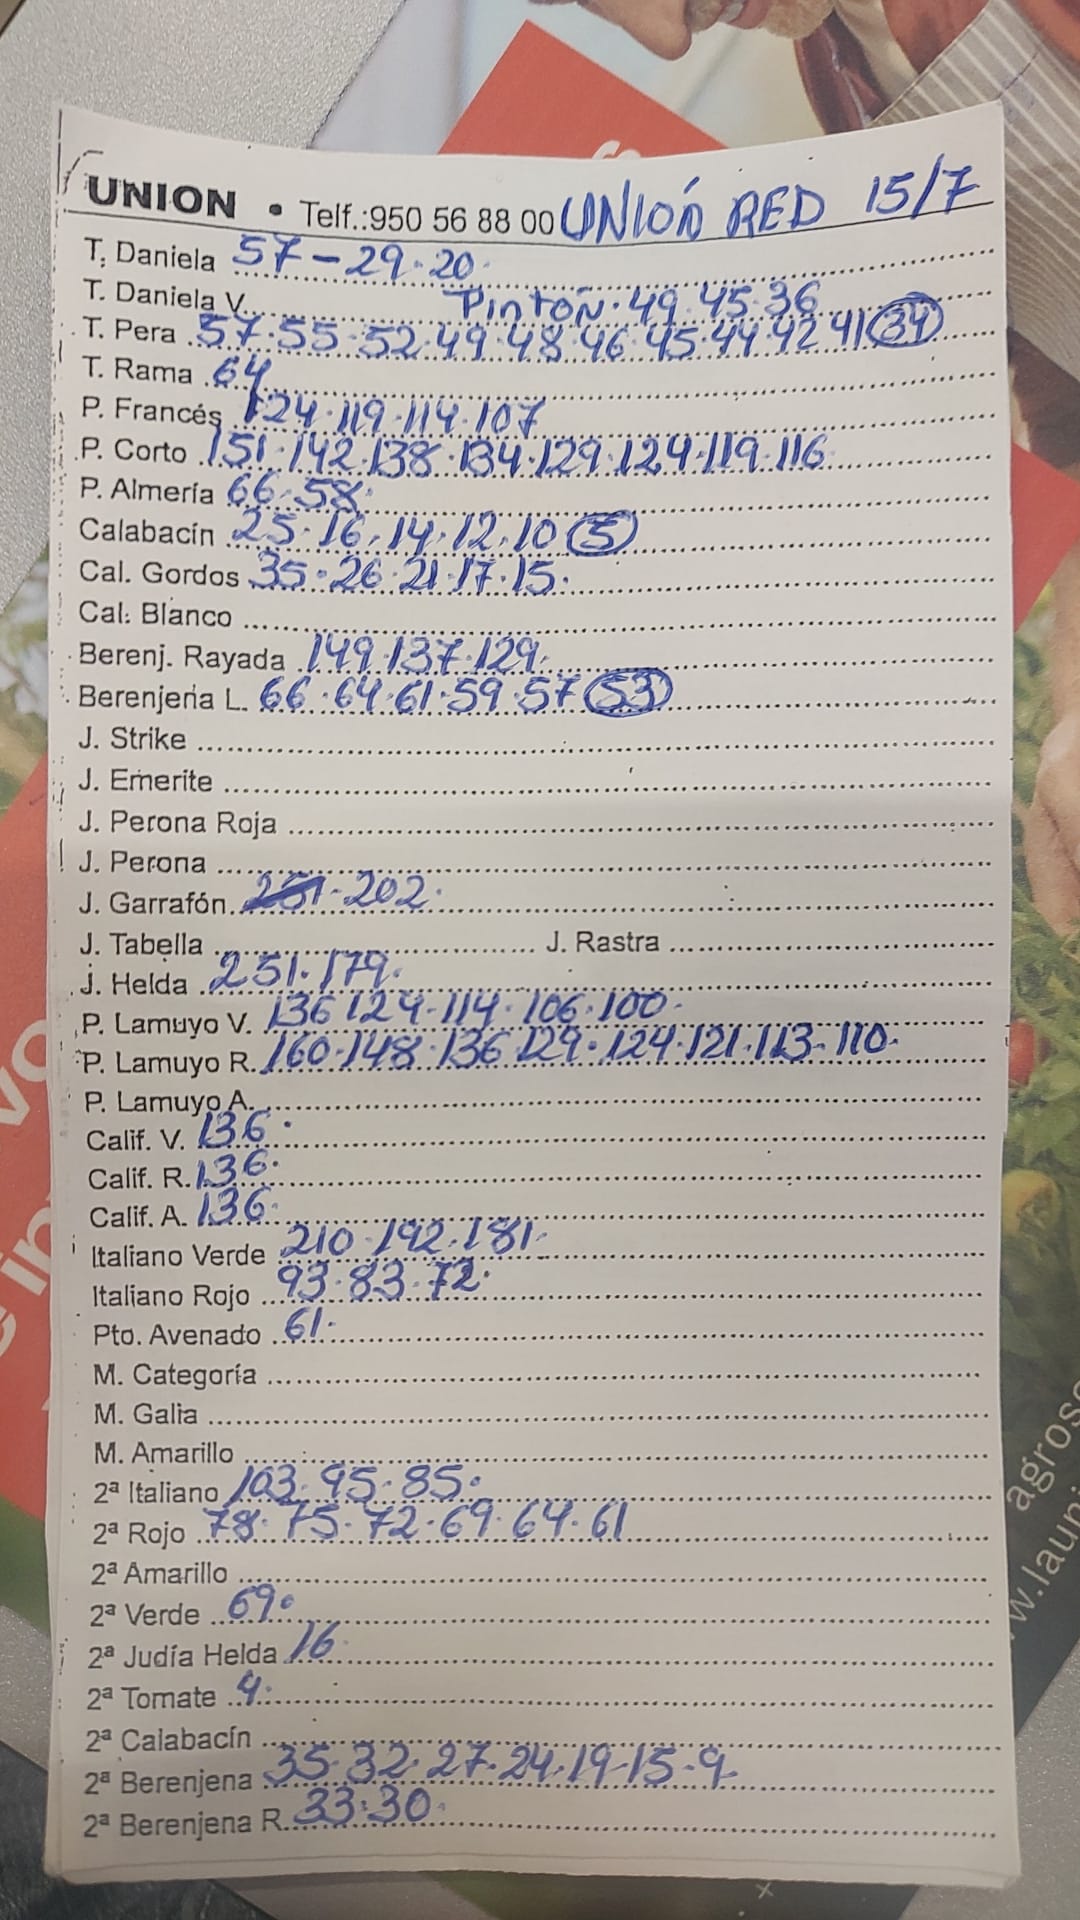 UNION • Telf.:950 56 88 00 UNIÓN RED 15/7
T. Daniela 57-29·20·
T. Daniela V. Pintoñ·49·45·36
T. Pera 57·55·52·49·48·46·45·44·42 41 (34)
T. Rama 64
P. Francés 124·119·114·107
P. Corto 151·142·138·134·129·124·119·116
P. Almería 66·58·
Calabacín 25·16·14·12·10 (5)
Cal. Gordos 35·26·21·17·15·
Cal. Blanco
Berenj. Rayada 149·137·129·
Berenjena L. 66·64·61·59·57 (53)
J. Strike
J. Emerite
J. Perona Roja
J. Perona
J. Garrafón 251·202·
J. Tabella J. Rastra
J. Helda 251·179·
P. Lamuyo V. 136 124·114·106·100·
P. Lamuyo R. 160·148·136·129·124·121·113·110·
P. Lamuyo A.
Calif. V. 136·
Calif. R. 136·
Calif. A. 136·
Italiano Verde 210·192·181·
Italiano Rojo 93·83·72·
Pto. Avenado 61·
M. Categoría
M. Galia
M. Amarillo
2ª Italiano 103·95·85·
2ª Rojo 78·75·72·69·64·61
2ª Amarillo
2ª Verde 69·
2ª Judía Helda 16
2ª Tomate 4·
2ª Calabacín
2ª Berenjena 35·32·27·24·19·15·9
2ª Berenjena R. 33·30·
agros
w.launi